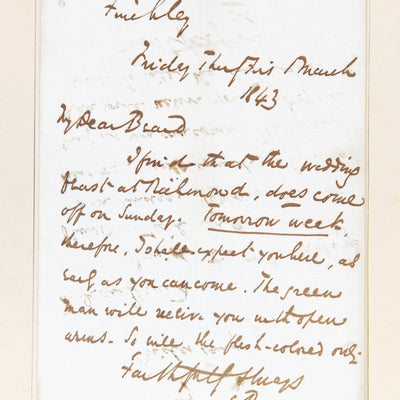 Finchley
Friday The First March
1843
My Dear Beard
I find that the wedding
feast at Richmond, does come
off on Sunday. Tomorrow week,
therefore, I shall expect you here, as
early as you can come. The green
man will receive you with open
arms. So will the flesh-colored one.
Faithfully Always